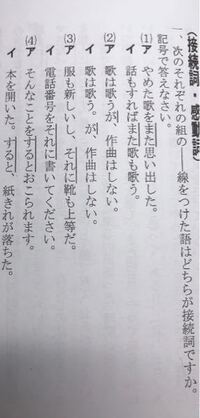 （接続詞・感動詞）
一、次のそれぞれの組の――線をつけた語はどちらが接続詞ですか。
記号で答えなさい。
(1)ア　やめた歌をまた思い出した。
イ　話もすればまた歌も歌う。
(2)ア　歌は歌うが、作曲はしない。
イ　歌は歌う。が、作曲はしない。
(3)ア　服も新しいし、それに靴も上等だ。
イ　電話番号をそれに書いてください。
(4)ア　そんなことをするとおこられます。
イ　本を開いた。すると、紙きれが落ちた。